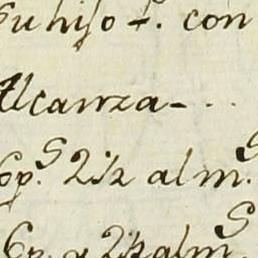 su hijo f. con
Alcanza - . .
6p.s 2 1/2 alm.s
6p. y 2 1/2 alm.s